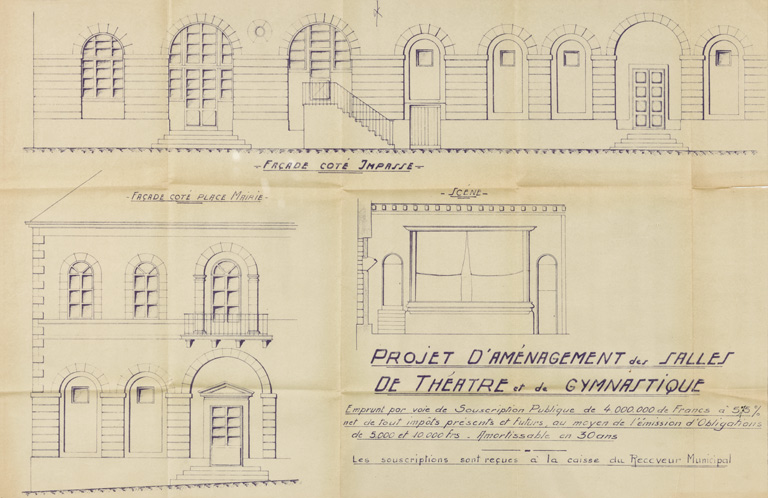 - FAÇADE COTÉ IMPASSE -
- FAÇADE COTÉ PLACE MAIRIE -
- SCÈNE -
PROJET D'AMÉNAGEMENT des SALLES
DE THÉATRE et de GYMNASTIQUE
Emprunt par voie de Souscription Publique de 4.000.000 de Francs à %
net de tout impôts présents et futurs, au moyen de l'émission d'Obligations
de 5.000 et 10.000 frs. Amortissable en 30 ans
Les souscriptions sont reçues à la caisse du Receveur Municipal